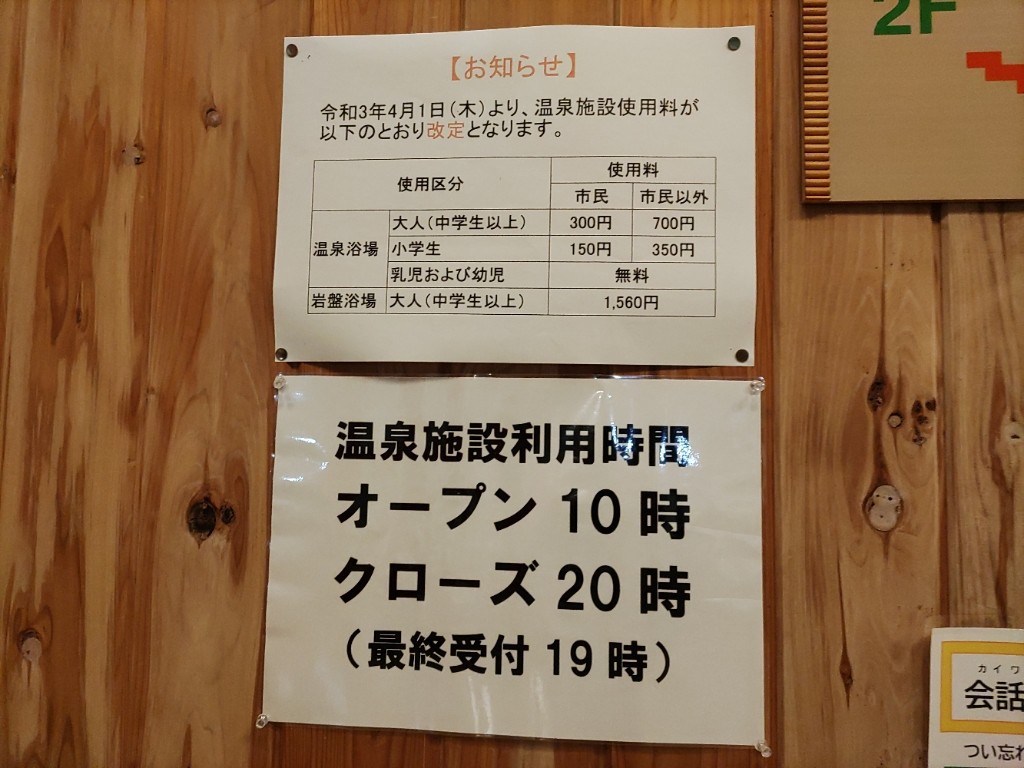 2F
【お知らせ】
令和3年4月1日(木)より、温泉施設使用料が
以下のとおり改定となります。
使用区分 使用料
市民 市民以外
温泉浴場 大人(中学生以上) 300円 700円
小学生 150円 350円
乳児および幼児 無料
岩盤浴場 大人(中学生以上) 1,560円
温泉施設利用時間
オープン 10 時
クローズ 20 時
(最終受付 19 時)
カイワ
会話
つい忘れ